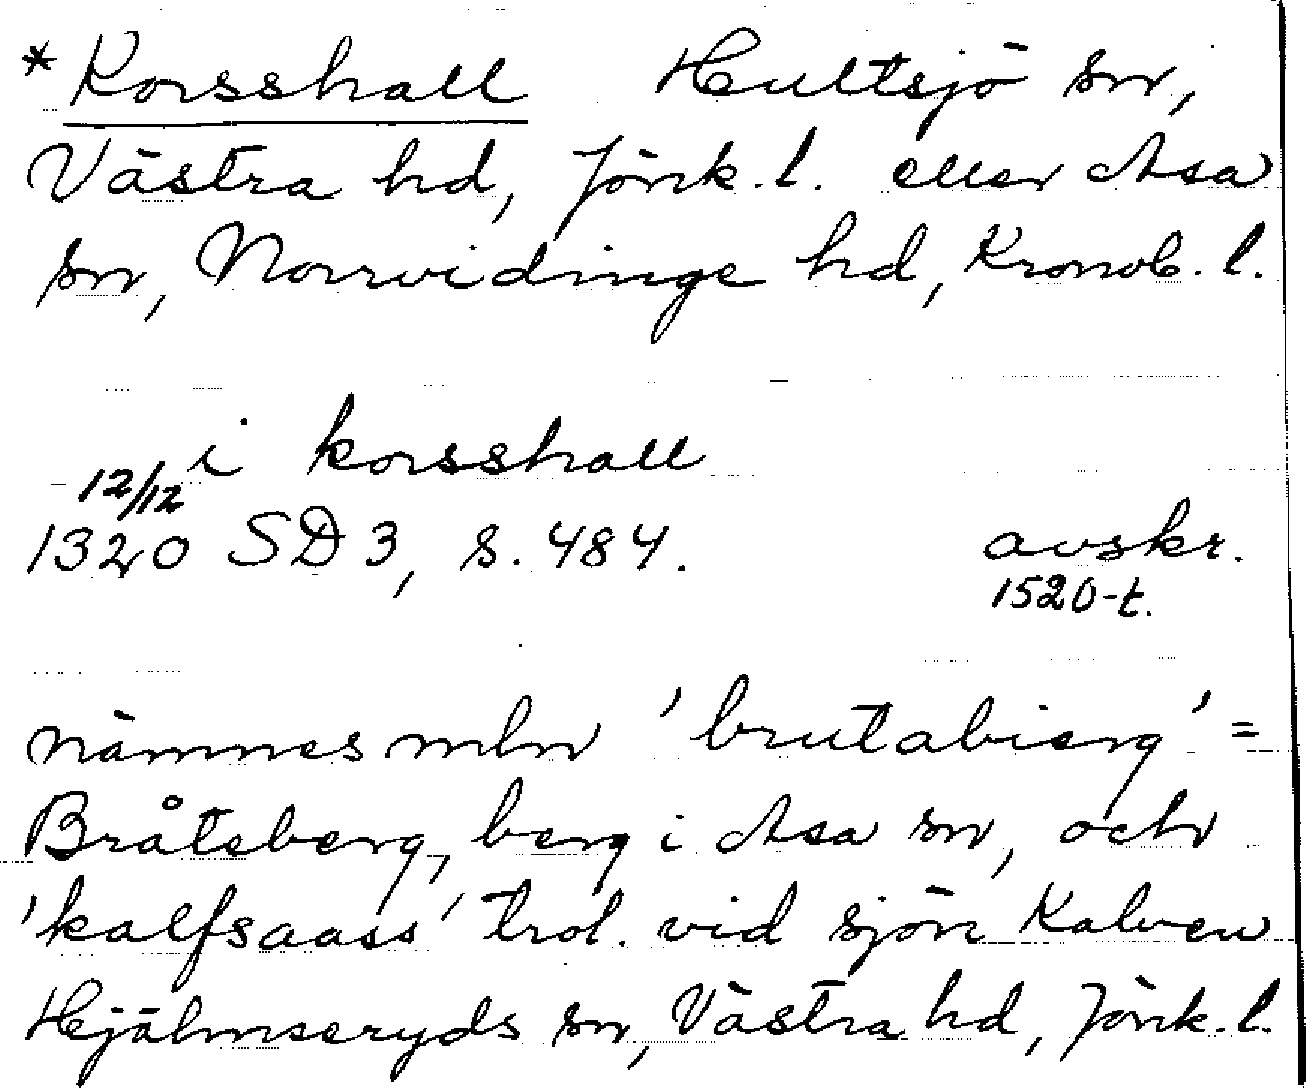 *Korsshall Hultsjö sn,
Västra hd, Jönk.l. eller Asa
sn, Norrvidinge hd, Kronob.l.
i korsshall
12/12
1320 SD 3, s. 484. avskr.
1520-t.
nämnes mln 'brutabierg' =
Bråteberg, berg i Asa sn, och
'kalfsaass' trol. vid sjön Kalven
Hjälmseryds sn, Västra hd, Jönk.l.